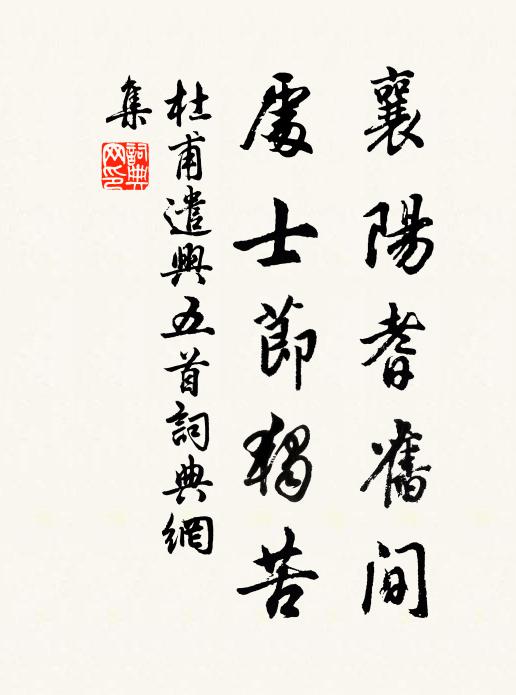 襄陽耆舊間
處士節獨苦
杜甫遣興五首詞典網
集
詞典
网印